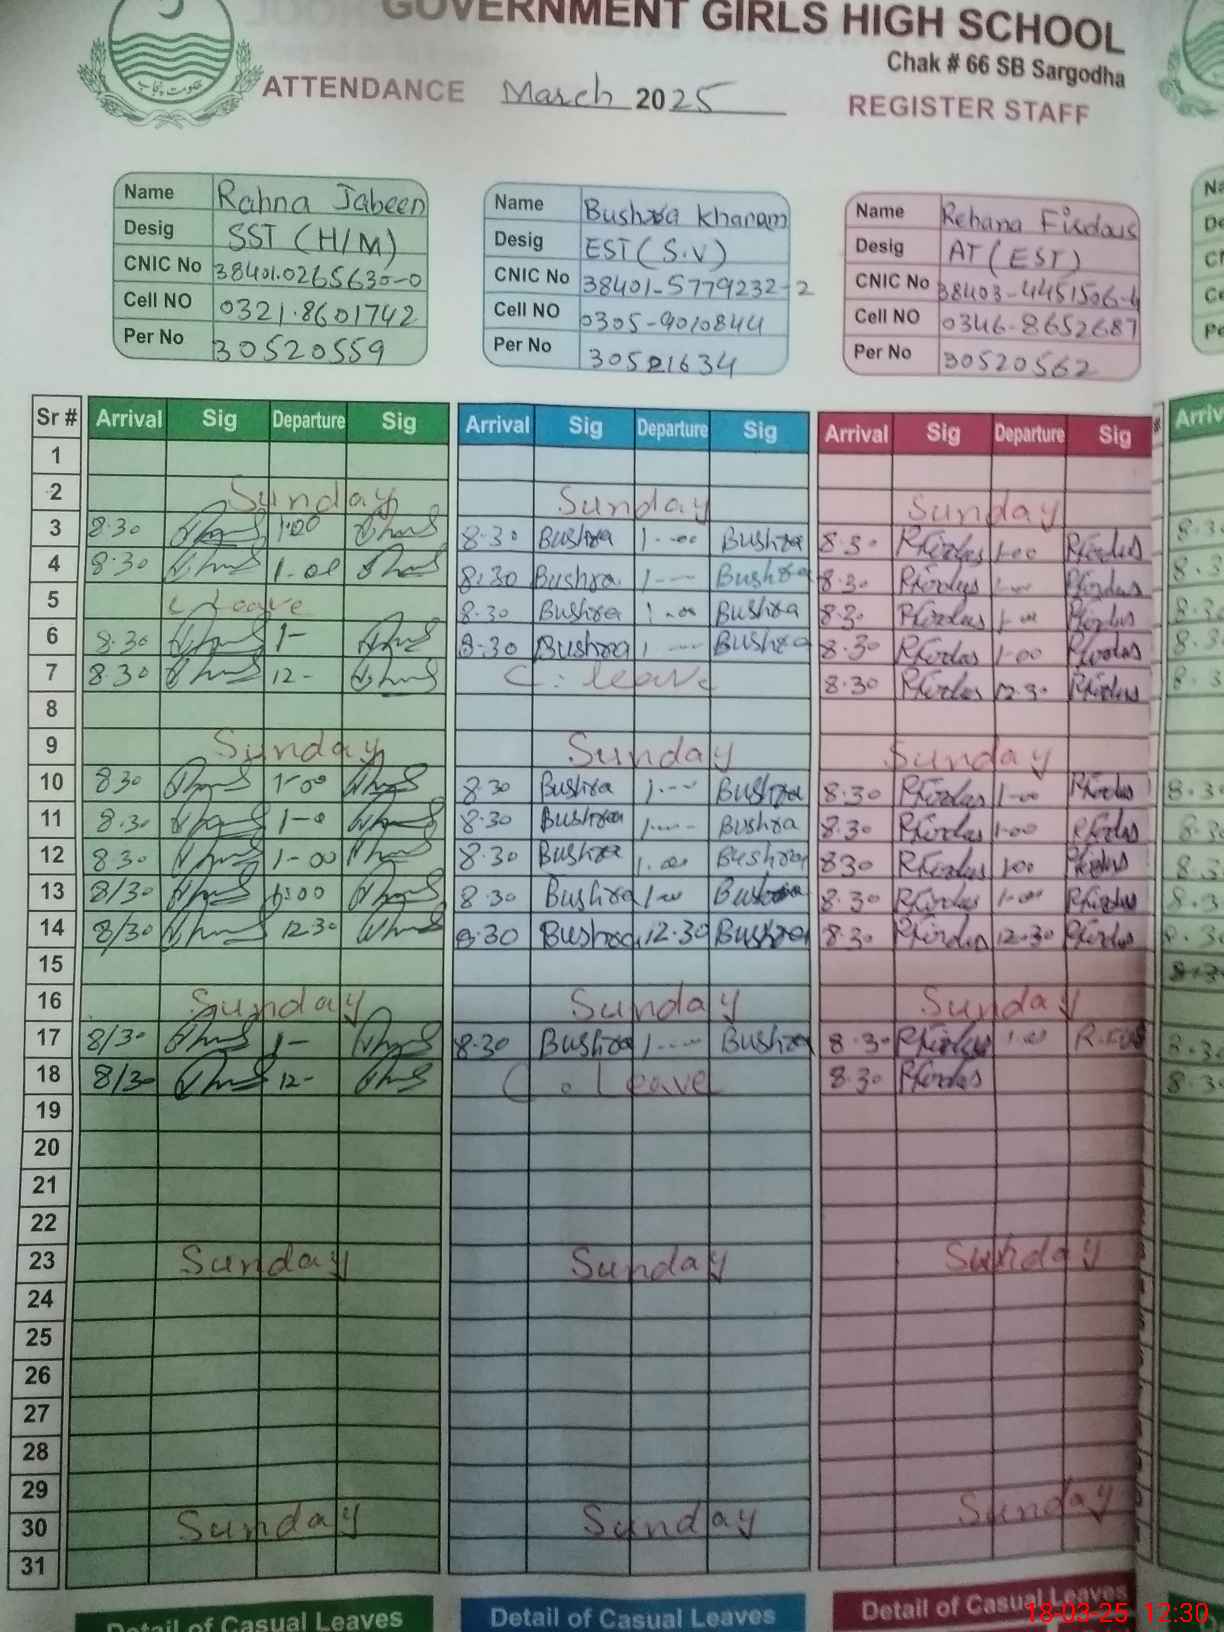 GOVERNMENT GIRLS HIGH SCHOOL
Chak # 66 SB Sargodha
ATTENDANCE March 2025 REGISTER STAFF
Name Rahna Jabeen
Desig SST (H/M)
CNIC No 38401.0265630-0
Cell NO 0321.8601742
Per No 30520559
Name Bushra kharam
Desig EST (S.V)
CNIC No 38401-5779232-2
Cell NO 0305-9010844
Per No 30521634
Name Rehana Firdous
Desig AT (EST)
CNIC No 38403-4451506-4
Cell NO 0346-8652687
Per No 30520562
Sr # Arrival Sig Departure Sig Arrival Sig Departure Sig Arrival Sig Departure Sig
1
2 Sunday Sunday Sunday
3 8.30 1.00 8.30 Bushra 1.00 Bushra 8.30 RFirdus 1.00 RFirdus
4 8.30 1.00 8.30 Bushra 1 Bushra 8.30 RFirdus RFirdus
5 C Leave 8.30 Bushra 1.00 Bushra 8.30 RFirdus 1.00 RFirdus
6 8.30 1- 8.30 Bushra 1 Bushra 8.30 RFirdus 1.00 RFirdus
7 8.30 12- C. leave 8.30 RFirdus 12.30 RFirdus
8
9 Sunday Sunday Sunday
10 8.30 1-00 8.30 Bushra 1 Bushra 8.30 RFirdus 1.00 RFirdus
11 8.30 1-0 8.30 Bushra 1 Bushra 8.30 RFirdus 1.00 RFirdus
12 8.30 1-00 8.30 Bushra 1.00 Bushra 8.30 RFirdus 1.00 RFirdus
13 8/30 1:00 8.30 Bushra 1.00 Bushra 8.30 RFirdus 1.00 RFirdus
14 8/30 12.30 8.30 Bushra 12.30 Bushra 8.30 RFirdus 12.30 RFirdus
15
16 Sunday Sunday Sunday
17 8/30 1- 8.30 Bushra 1 Bushra 8.30 RFirdus 1.00
18 8/30 12- C. Leave 8.30 RFirdus
19
20
21
22
23 Sunday Sunday Sunday
24
25
26
27
28
29
30 Sunday Sunday Sunday
31
Detail of Casual Leaves Detail of Casual Leaves Detail of Casual Leaves
18-03-25 12:30